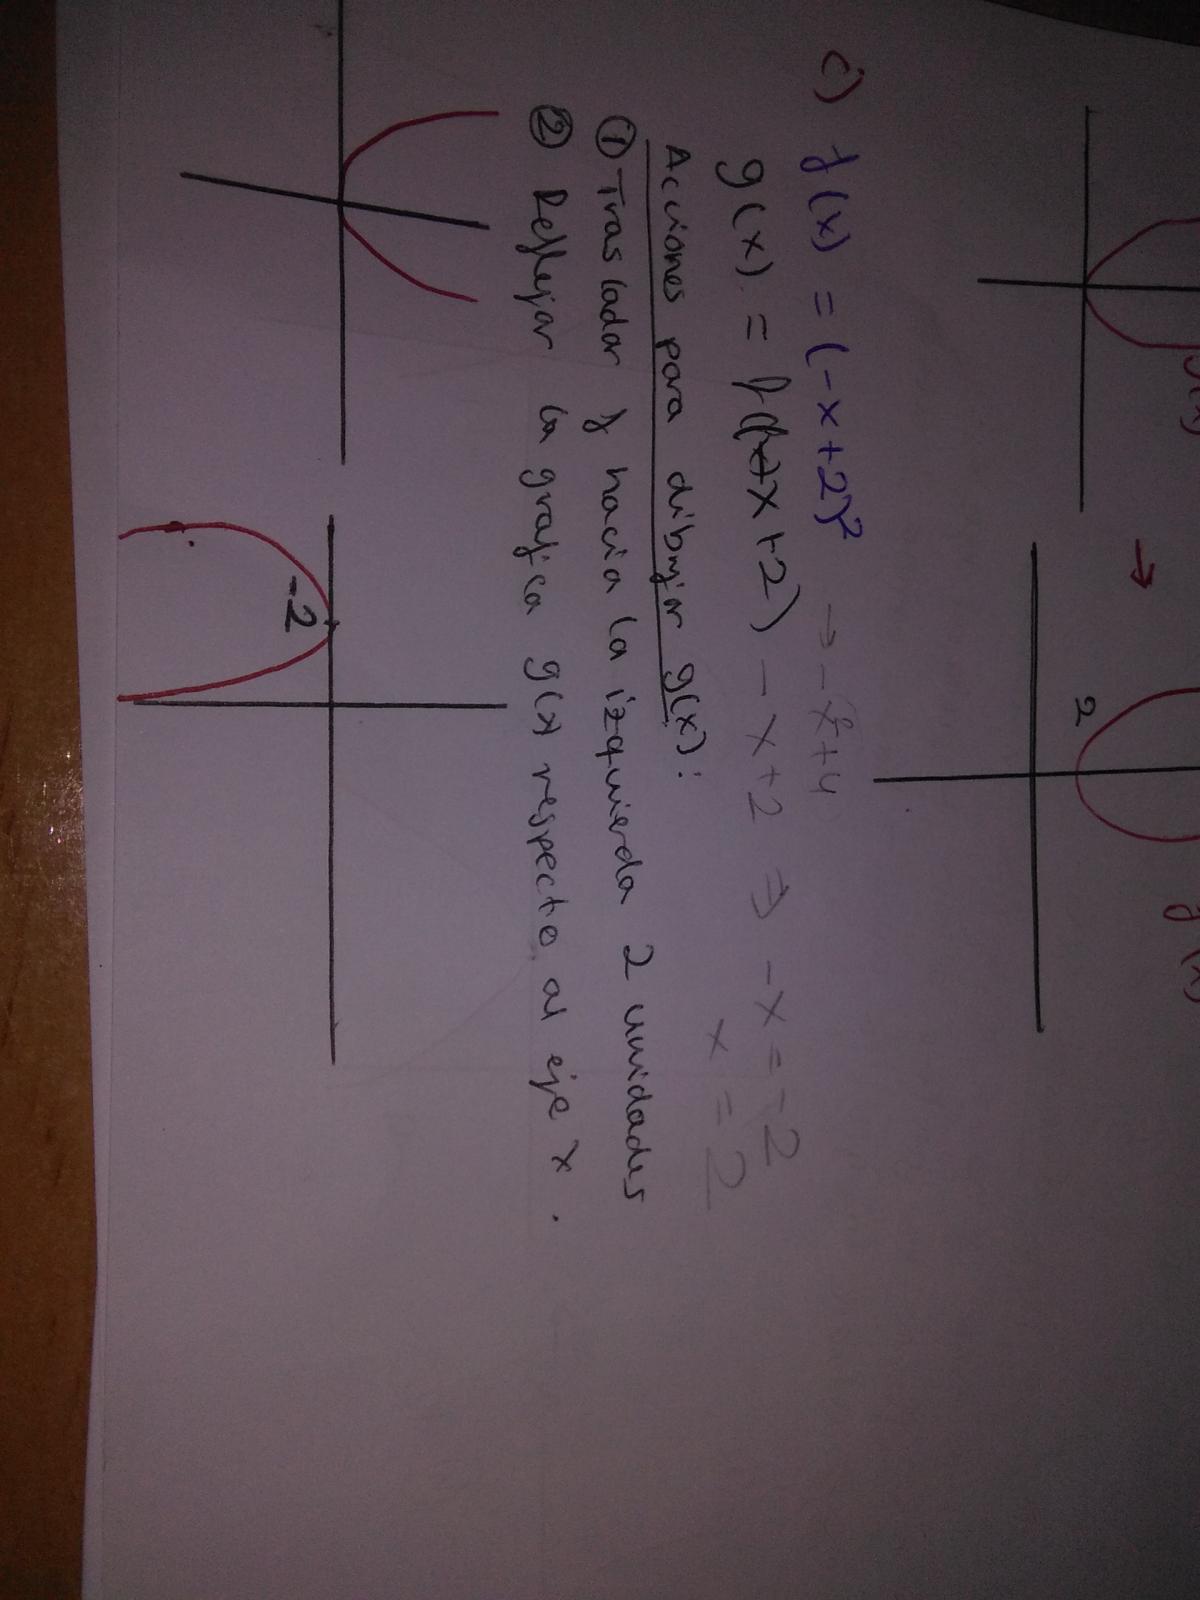 2
c) f(x) = (-x+2)² → -x²+4
g(x) = f(-x+2) - x+2 ⇒ -x = -2
x = 2
Acciones para dibujar g(x):
① Trasladar f hacia la izquierda 2 unidades
② Reflejar la grafica g(x) respecto al eje x.
-2